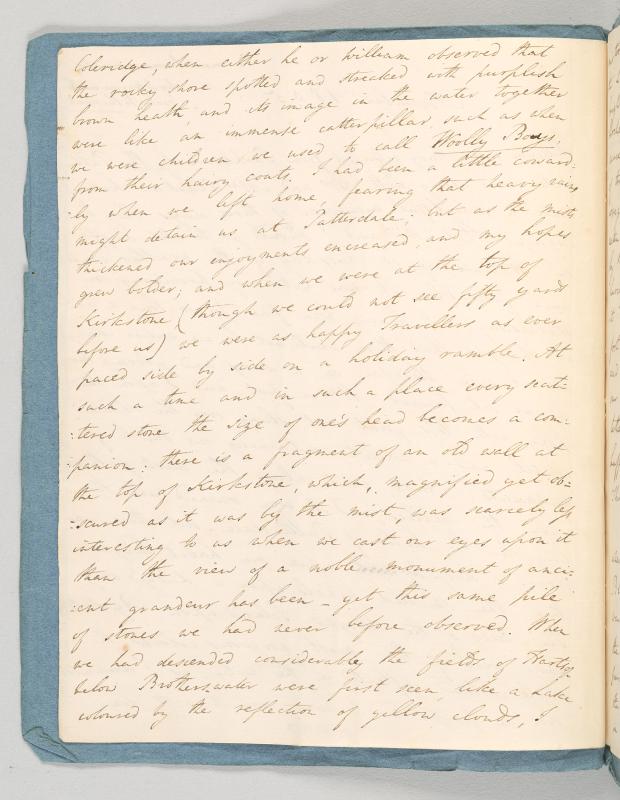 Coleridge, when either he or William observed that
the rocky shore spotted and streaked with purplish
brown heath, and its image in the water together
were like an immense catterpillar, such as when
we were children we used to call Woolly Boys,
from their hairy coats. I had been a little coward:
:ly when we left home, fearing that heavy rains
might detain us at Patterdale; but as the mists
thickened our enjoyments encreased, and my hopes
grew bolder; and when we were at the top of
Kirkstone (though we could not see fifty yards
before us) we were as happy Travellers as ever
paced side by side on a holiday ramble. At
such a time and in such a place every scat:
:tered stone the size of one's head becomes a com:
:panion: there is a fragment of an old wall at
the top of Kirkstone, which, magnified yet ob:
:scured as it was by the mist, was scarcely less
interesting to us when we cast our eyes upon it
than the view of a noble monument of anci:
:ent grandeur has been - yet this same pile
of stones we had never before observed. When
we had descended considerably the fields of Hartsop
below Brotherswater were first seen, like a Lake
coloured by the reflection of yellow clouds, I